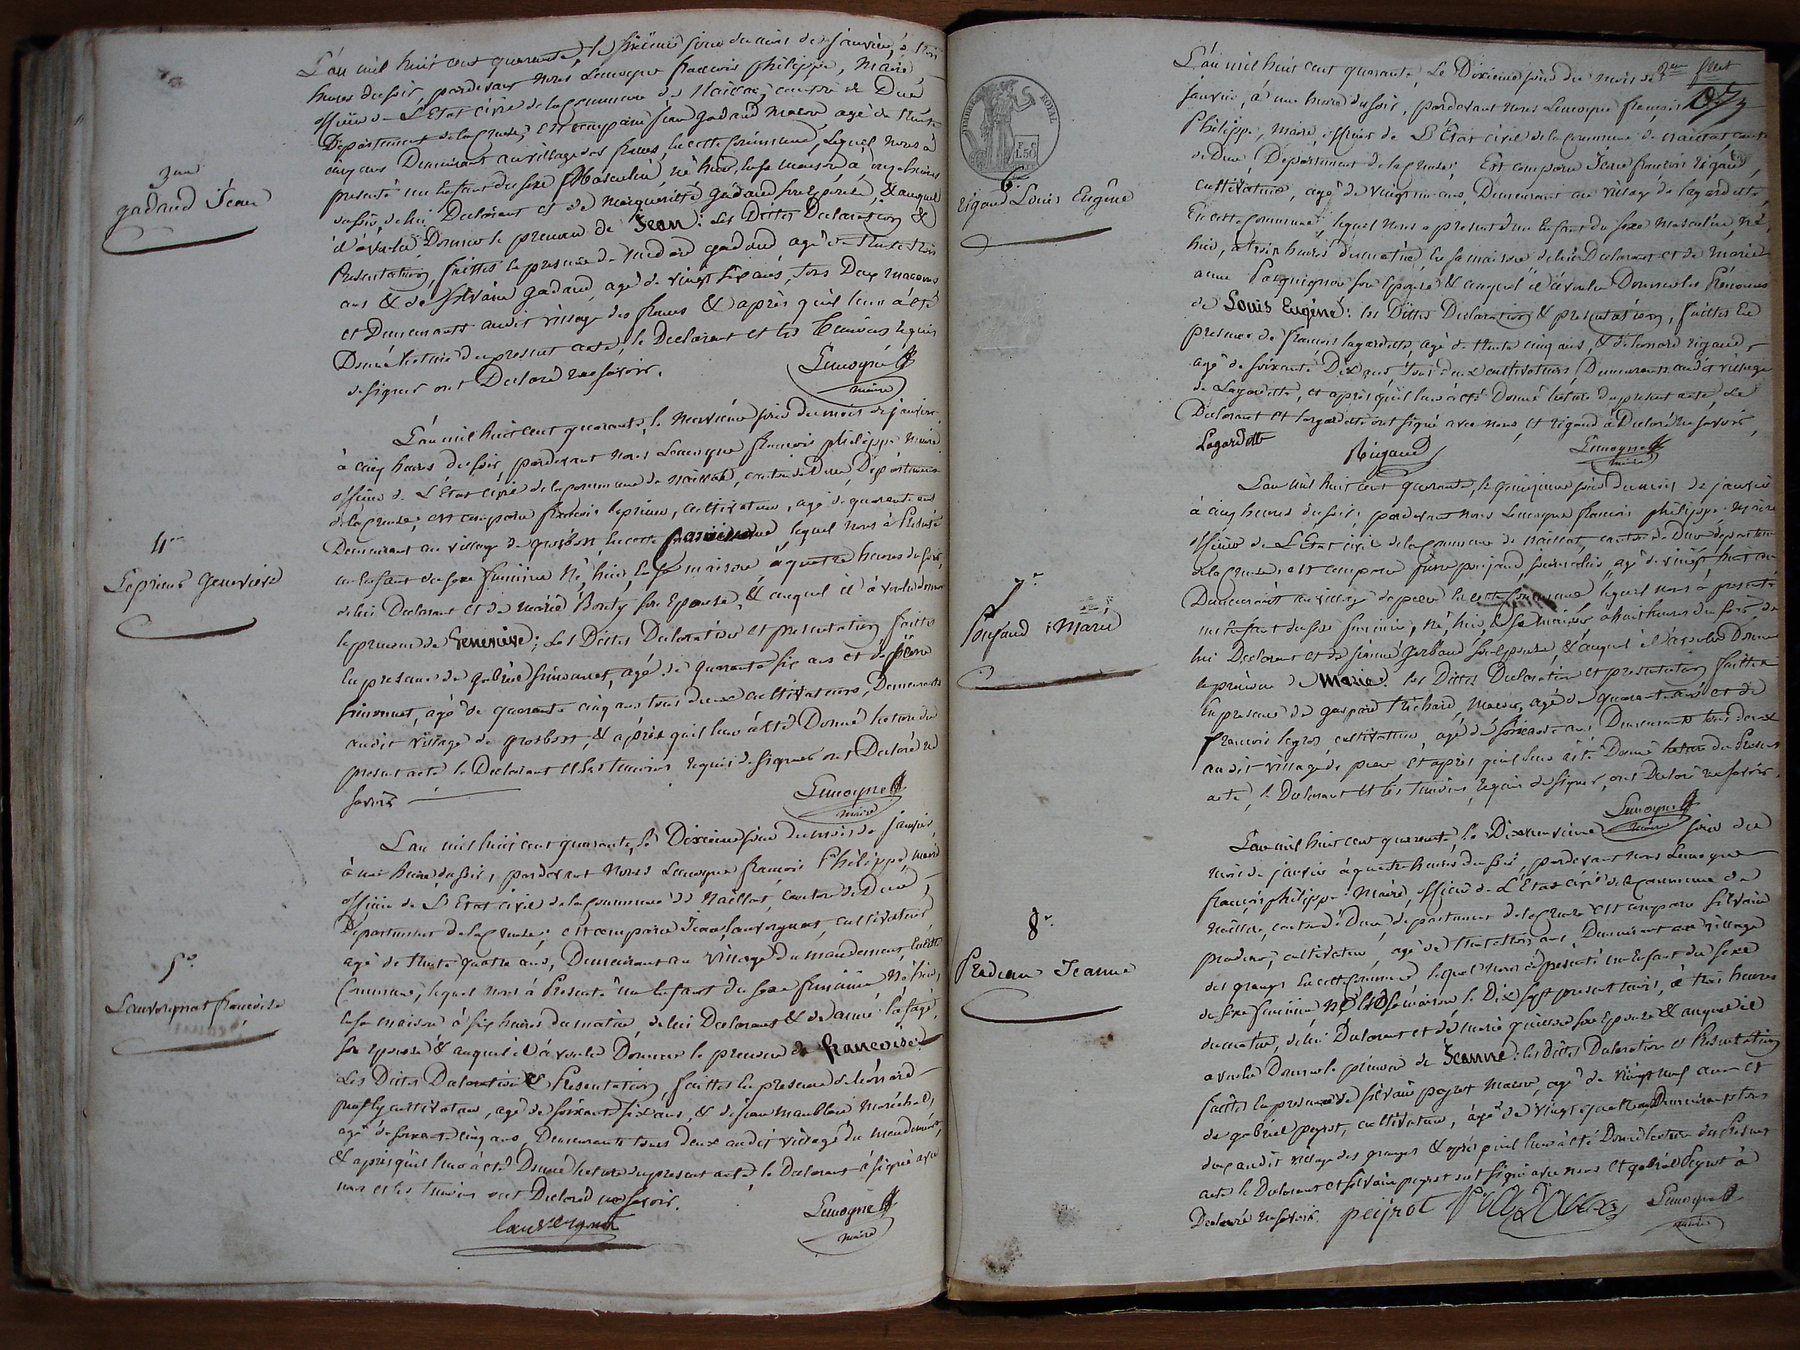 3eme
gadaud Jean
L'an mil huit cent quarante, le sixième jour du mois de janvier, à trois
heures du soir, pardevant nous Lemoyne françois philippe, Maire
officier de L'Etat civil de la Commune de Naillat, canton de Dun
Département de la Creuse; est comparu jean gadaud macon agé de trente
cinq ans Demeurant au village des francs, en cette commune, lequel nous à
presenté un enfant du sexe Masculin, né hier, en sa maison à onze heures
du soir, de lui Declarant et de marguerite gadaud son épouse, & auquel
il à voulu Donner le prenom de Jean: Les Dittes Declaration &
Presentation, faittes en presence de gadaud agé de trente trois
ans & de Silvain gadaud, agé de vingt six ans, tous Deux macons
et Demeurants audit village des francs & après qu'il leur à été
Donné lecture du present acte, le Declarant et les temoins requis
de signer ont Declaré ne savoir.
Lemoyne
maire
4eme
Lepieux genevieve
L'an mil huit cent quarante, le Neuvième jour du mois de janvier
à cinq heures du soir, pardevant nous Lemoyne françois philippe Maire
officier de L'Etat civil de la commune de Naillat, canton de Dun Département
de la Creuse, est comparu françois lepieux, cultivateur, agé de quarante ans
Demeurant au village de grosbost, en cette commune, lequel nous à Presenté
un enfant du sexe feminin Né, hier, en sa maison à quatre heures du soir,
de lui Declarant et de marie Bouty son Epouse, & auquel il à voulu donner
le prenom de Genevieve; Les Dittes Declaration et presentation faittes
en presence de gabriel simonnet, agé de quarante six ans et de pierre
simonnet, agé de quarante cinq ans tous deux cultivateurs, Demeurants
audit village de grosbost, & après qu'il leur à été Donné lecture du
present acte le Declarant et les temoins requis de signer ont Declaré ne
savoir
Lemoyne
maire
5e
Lauvergnat francoise
L'an mil huit cent quarante, le Dixième jour du mois de janvier,
à une heure du soir, pardevant nous Lemoyne françois Philippe, maire
officier de L'Etat civil de la commune de Naillat, canton de Dun,
Département de la Creuse; est comparu Jean, lauvergnat, cultivateur
agé de trente quatre ans, Demeurant au village du mandement, en cette
Commune, lequel nous à Presenté un enfant du sexe feminin Né hier,
en sa maison à six heures du matin, de lui Declarant & d'anne lafage,
son epouse & auquel il à voulu Donner le prenom de francoise:
Les Dittes Declaration & Presentation, faittes en presence de léonard
cultivateur, agé de soixante six ans, & de jean maublanc Maréchal,
agé de soixante cinq ans, Demeurants tous deux audit village du mandement,
& après qu'il leur à été Donné lecture du present acte le Declarant à signé avec
nous et les temoins ont Declaré ne savoir.
lauvergnat
Lemoyne
maire
TIMBRE ROYAL
1.50
2me feuillet
6e
rigaud Louis Eugène
L'an mil huit cent quarante, Le Dixième jour du mois de
janvier, à une heure du soir, pardevant nous Lemoyne françois
Philippe, Maire officier de L'Etat civil de la commune de Naillat, canton
de Dun, Département de la Creuse; Est comparu françois rigaud,
cultivateur, agé de ans, Demeurant au village de lagardette,
En cette commune, lequel nous a presenté un Enfant du sexe masculin, né,
hier, à trois heures du matin, en sa maison de lui Declarant et de Marie
anne son Epouse & auquel il à voulu Donner les Prénoms
de Louis Eugène: les Dittes Declaration & presentation, faittes En
presence de françois lagardette, agé de trente cinq ans, & de leonard rigaud,
agé de soixante Dix ans tous deux cultivateurs Demeurants audit village
de Lagardette, et après qu'il leur à été Donné lecture du present acte, Le
Declarant et lagardette ont signé avec nous, et rigaud à Declaré ne savoir,
Lagardette
Rigaud
Lemoyne
maire
7e
Poujaud Marie
L'an mil huit cent quarante, le quinzième jour du mois de janvier
à cinq heures du soir, pardevant nous Lemoyne françois philippe Maire
officier de L'Etat civil de la Commune de Naillat, canton de Dun département
de la Creuse; est comparu poujaud, journalier, agé de vingt huit ans
Demeurant au village de en cette commune lequel nous à presenté
un Enfant du sexe feminin, né, hier, en sa maison à huit heures du soir de
lui Declarant et de jeanne son Epouse, & auquel il à voulu Donner
le prénom de Marie: les Dittes Declaration et presentation faittes
En presence de gaspard trichard, macon, agé de quarante ans et de
françois legros, cultivateur, agé de soixante ans, Demeurants tous deux
audit village de et après qu'il leur à été Donné lecture du Present
acte, le Declarant et les temoins, requis de signer, ont Declaré ne savoir.
Lemoyne
maire
8e
Pradeau Jeanne
L'an mil huit cent quarante, le Dix neuvième jour du
mois de janvier à quatre heures du soir, pardevant nous Lemoyne
françois philippe Maire, officier de L'Etat civil de la Commune de
Naillat, canton de Dun, departement de la Creuse est comparu silvain
pradeau, cultivateur, agé de trente trois ans, Demeurant au village
des granges en cette commune lequel nous à presenté un Enfant du sexe
de sexe feminin né en sa maison, le Dix sept present mois, à trois heures
du matin, de lui Declarant et de marie son Epouse & auquel il
à voulu Donner le prénom de Jeanne: les Dittes Declaration et Presentation
faittes en presence de silvain peyrot macon, agé de vingt neuf ans et
de gabriel peyrot, cultivateur, agé de vingt quatre ans Demeurants tous
deux audit village des granges & après qu'il leur à été Donné lecture du Present
acte le Declarant et silvain peyrot ont signé avec nous et gabriel Peyrot à
Declaré ne savoir. peyrot
Lemoyne
maire